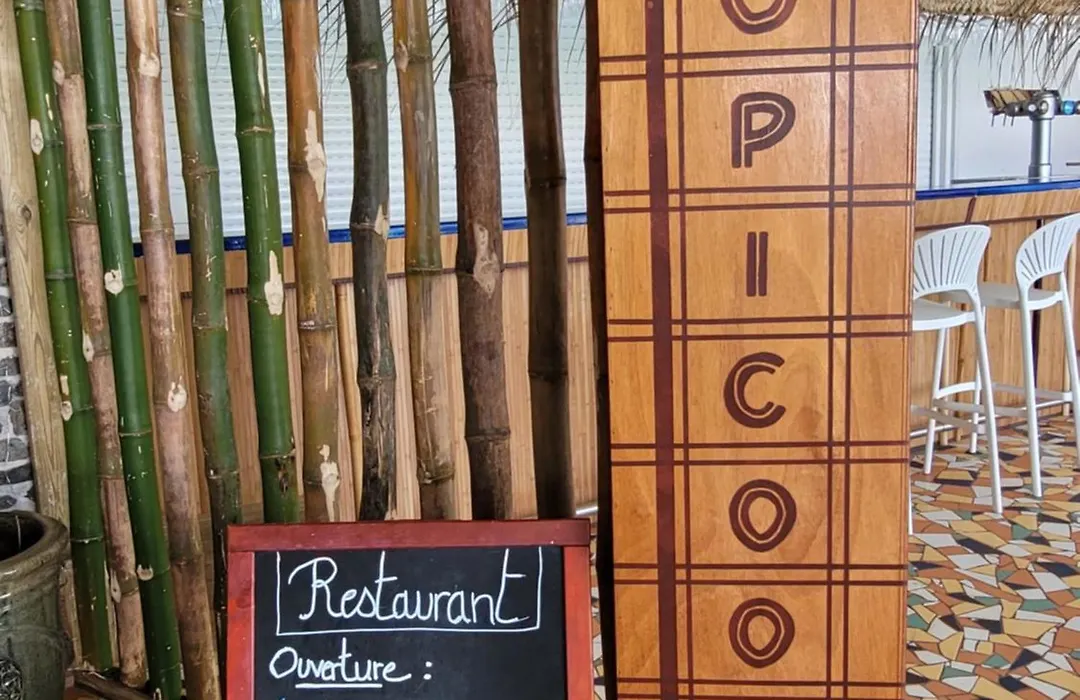 OPICOO
Restaurant
Ouverture :